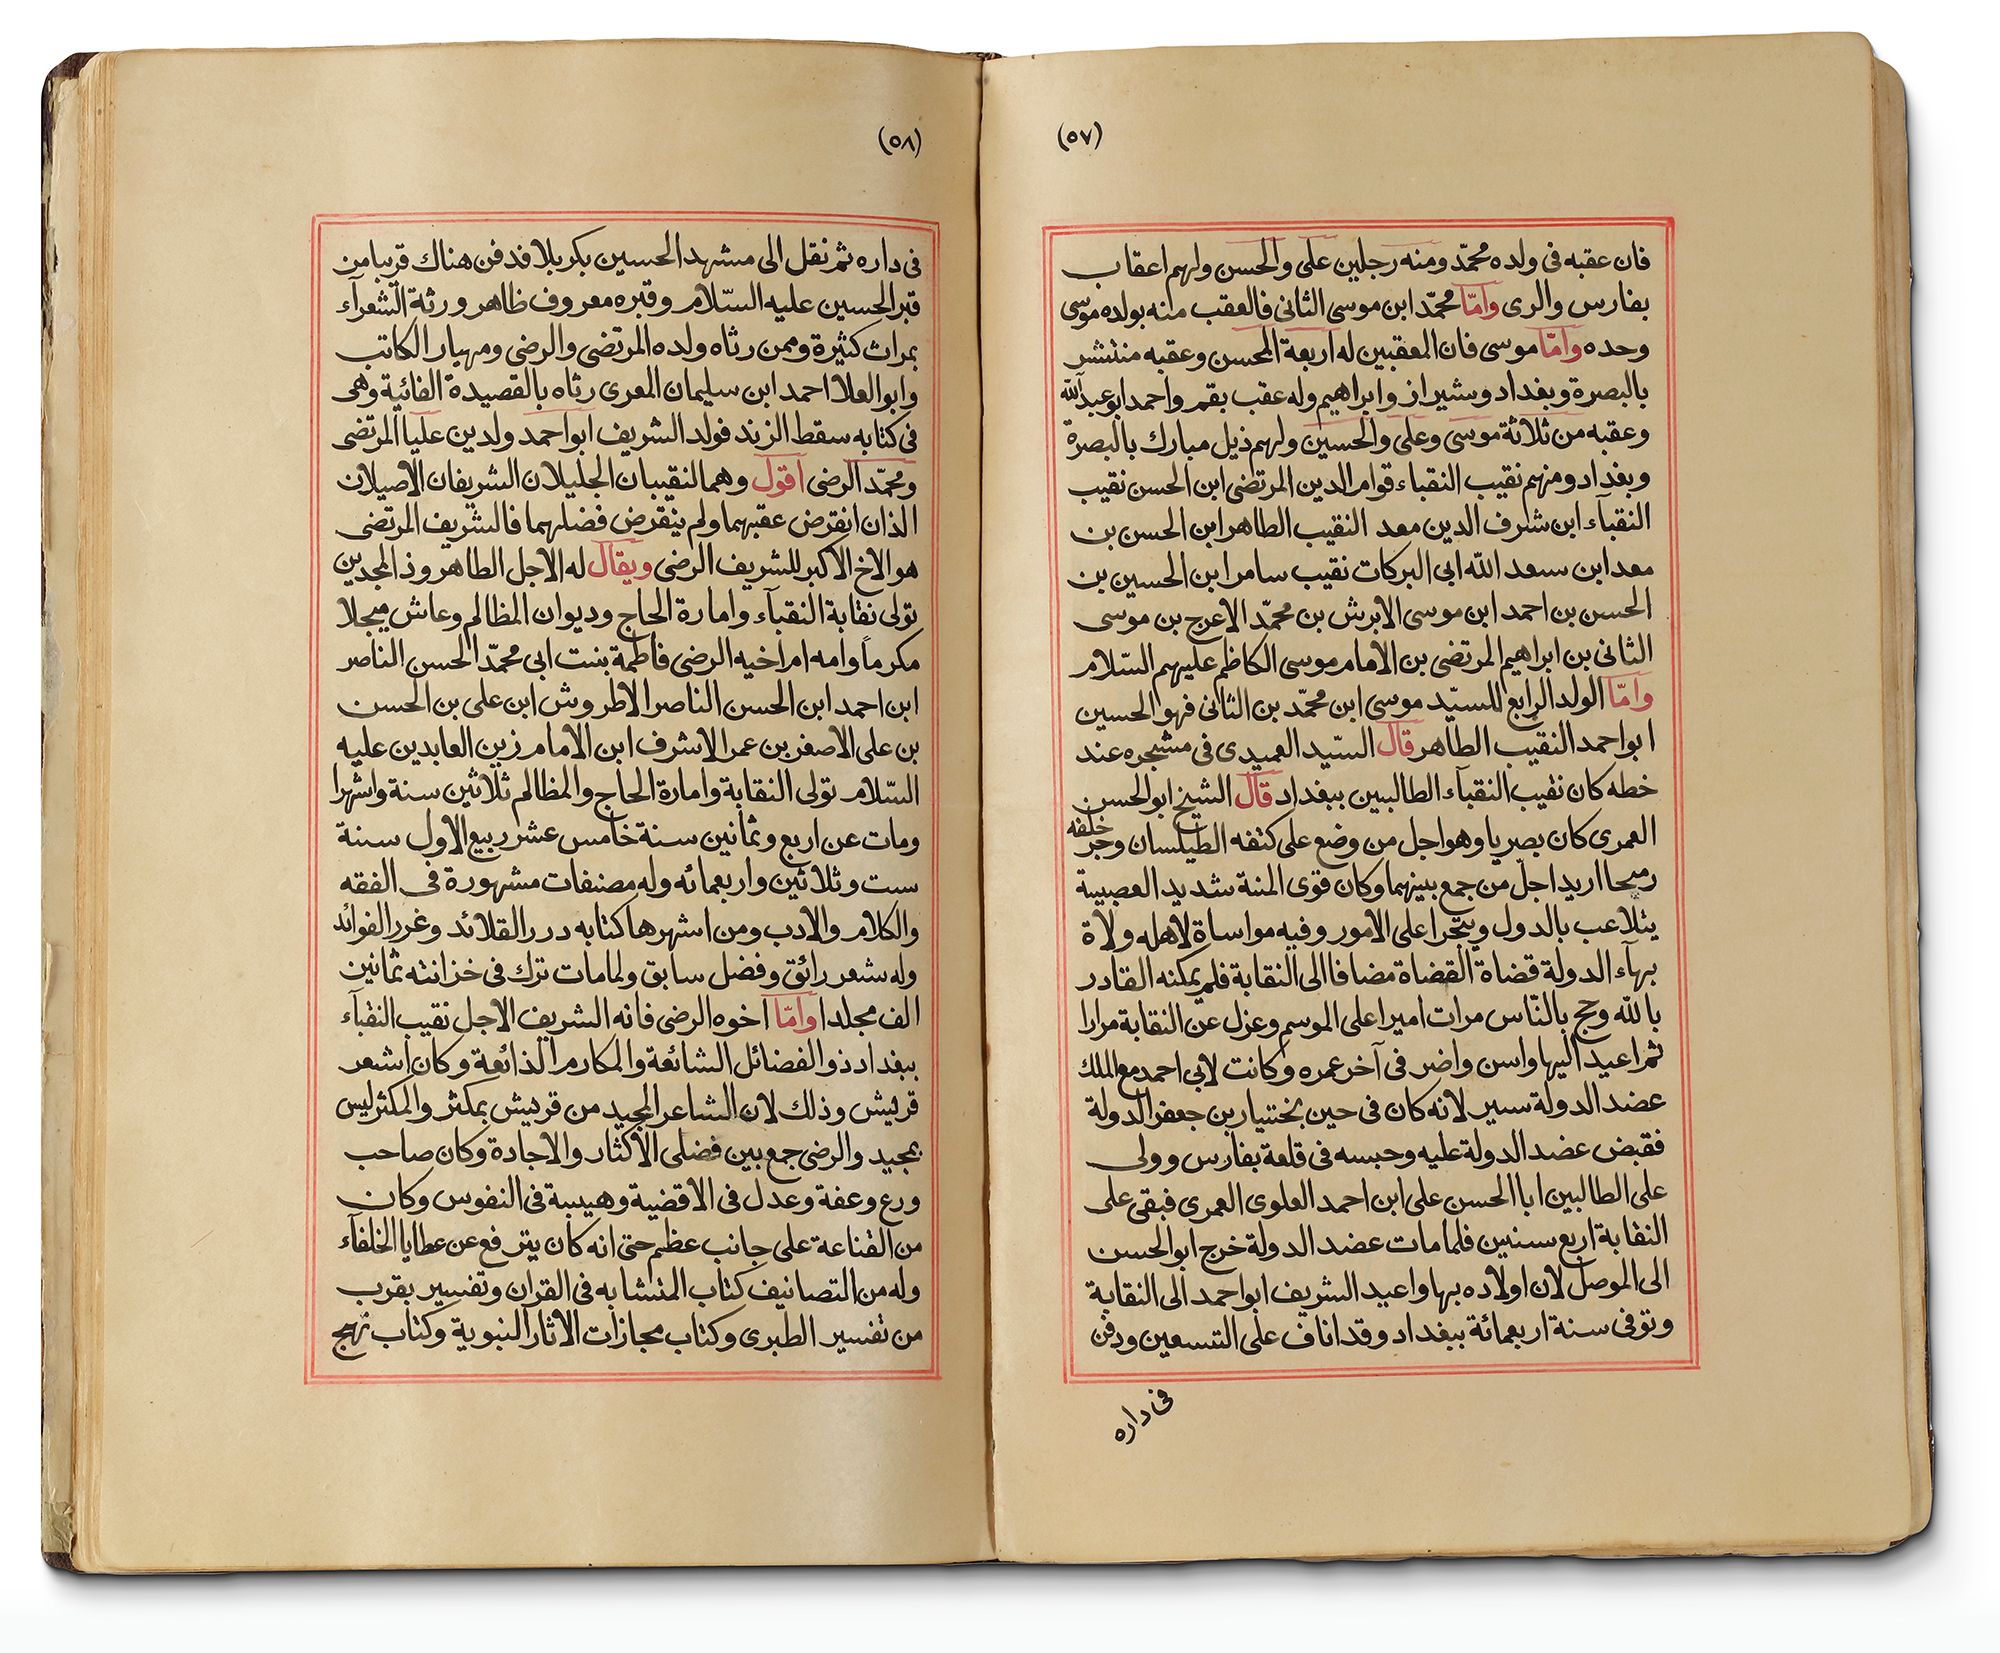 (٥٧)
فان عقبه فى ولده محمّد ومنه رجلين على والحسن ولهم اعقاب
بفارس والرى وامّا محمّد ابن موسى الثانى فالعقب منه بولده موسى
وحده وامّا موسى فان المعقبين له اربعة المحسن وعقبه منتشر
بالبصرة وبغداد وشيراز وابراهيم وله عقب بقم واحمد ابو عبد الله
وعقبه من ثلاثة موسى وعلى والحسين ولهم ذيل مبارك بالبصرة
وبغداد ومنهم نقيب النقباء قوام الدين المرتضى ابن الحسن نقيب
النقبآء ابن شرف الدين معد النقيب الطاهر ابن الحسن بن
معد ابن سعد الله ابى البركات نقيب سامرا بن الحسين بن
الحسن بن احمد ابن موسى الابرش بن محمّد الاعرج بن موسى
الثانى بن ابراهيم المرتضى بن الامام موسى الكاظم عليهم السّلام
وامّا الولد الرابع للسيّد موسى ابن محمّد بن الثانى فهو الحسين
ابو احمد النقيب الطاهر قال السيّد العميدى فى مشجره عند
خطه كان نقيب النقبآء الطالبيين ببغداد قال الشيخ ابو الحسن
العمرى كان بصريا وهو اجل من وضع على كتفه الطيلسان وجر خلفه
رمحا اريد اجلّ من جمع بينهما وكان قوى المنة شديد العصبية
يتلاعب بالدول ويتجرا على الامور وفيه مواساة لاهله ولاة
بهآء الدولة قضاة القضاة مضافا الى النقابة فلم يمكنه القادر
بالله وحج بالنّاس مرات اميرا على الموسم وعزل عن النقابة مرارا
ثم اعيد اليها واسن واضر فى آخر عمره وكانت لابى احمد مع الملك
عضد الدولة سير لانه كان فى حين بختيار بن جعفر الدولة
فقبض عضد الدولة عليه وحبسه فى قلعة بفارس وولى
على الطالبين ابا الحسن على ابن احمد العلوى العمرى فبقى على
النقابة اربع سنين فلما مات عضد الدولة خرج ابو الحسن
الى الموصل لان اولاده بها واعيد الشريف ابو احمد الى النقابة
وتوفى سنة اربعمائة ببغداد وقد اناف على التسعين ودفن
فى داره
(٥٨)
فى داره ثم نقل الى مشهد الحسين بكربلا فدفن هناك قريبا من
قبر الحسين عليه السّلام وقبره معروف ظاهر ورثة الشعرآء
بمراث كثيرة وممن رثاه ولده المرتضى والرضى ومهيار الكاتب
وابو العلا احمد ابن سليمان المعرى رثاه بالقصيدة الفائية وهى
فى كتابه سقط الزند فولد الشريف ابو احمد ولدين عليا المرتضى
ومحمّد الرضى اقول وهما النقيبان الجليلان الشريفان الاصيلان
الذان انقرض عقبهما ولم ينقرض فضلهما فالشريف المرتضى
هو الاخ الاكبر للشريف الرضى ويقال له الاجل الطاهر وذا المجدين
تولى نقابة النقبآء وامارة الحاج وديوان المظالم وعاش مبجلا
مكرماً وامه ام اخيه الرضى فاطمة بنت ابى محمّد الحسن الناصر
ابن احمد ابن الحسن الناصر الاطروش ابن على بن الحسن
بن على الاصغر بن عمر الاشرف ابن الامام زين العابدين عليه
السّلام تولى النقابة وامارة الحاج والمظالم ثلاثين سنة واشهرا
ومات عن اربع وثمانين سنة خامس عشر ربيع الاول سنة
ست وثلاثين واربعمائه وله مصنفات مشهورة فى الفقه
والكلام والادب ومن اشهرها كتابه درر القلائد وغرر الفوائد
وله شعر رائق وفضل سابق ولما مات ترك فى خزانته ثمانين
الف مجلدا وامّا اخوه الرضى فانه الشريف الاجل نقيب النقبآء
ببغداد ذو الفضائل الشائعة والمكارم الذائعة وكان اشعر
قريش وذلك لان الشاعر المجيد من قريش بمكثر والمكثر ليس
بمجيد والرضى جمع بين فضلى الاكثار والاجادة وكان صاحب
ورع وعفة وعدل فى الاقضية وهيبة فى النفوس وكان
من القناعة على جانب عظم حتى انه كان يترفع عن عطايا الخلفآء
وله من التصانيف كتاب المتشابه فى القران وتفسير بقرب
من تفسير الطبرى وكتاب مجازات الاثار النبوية وكتاب نهج